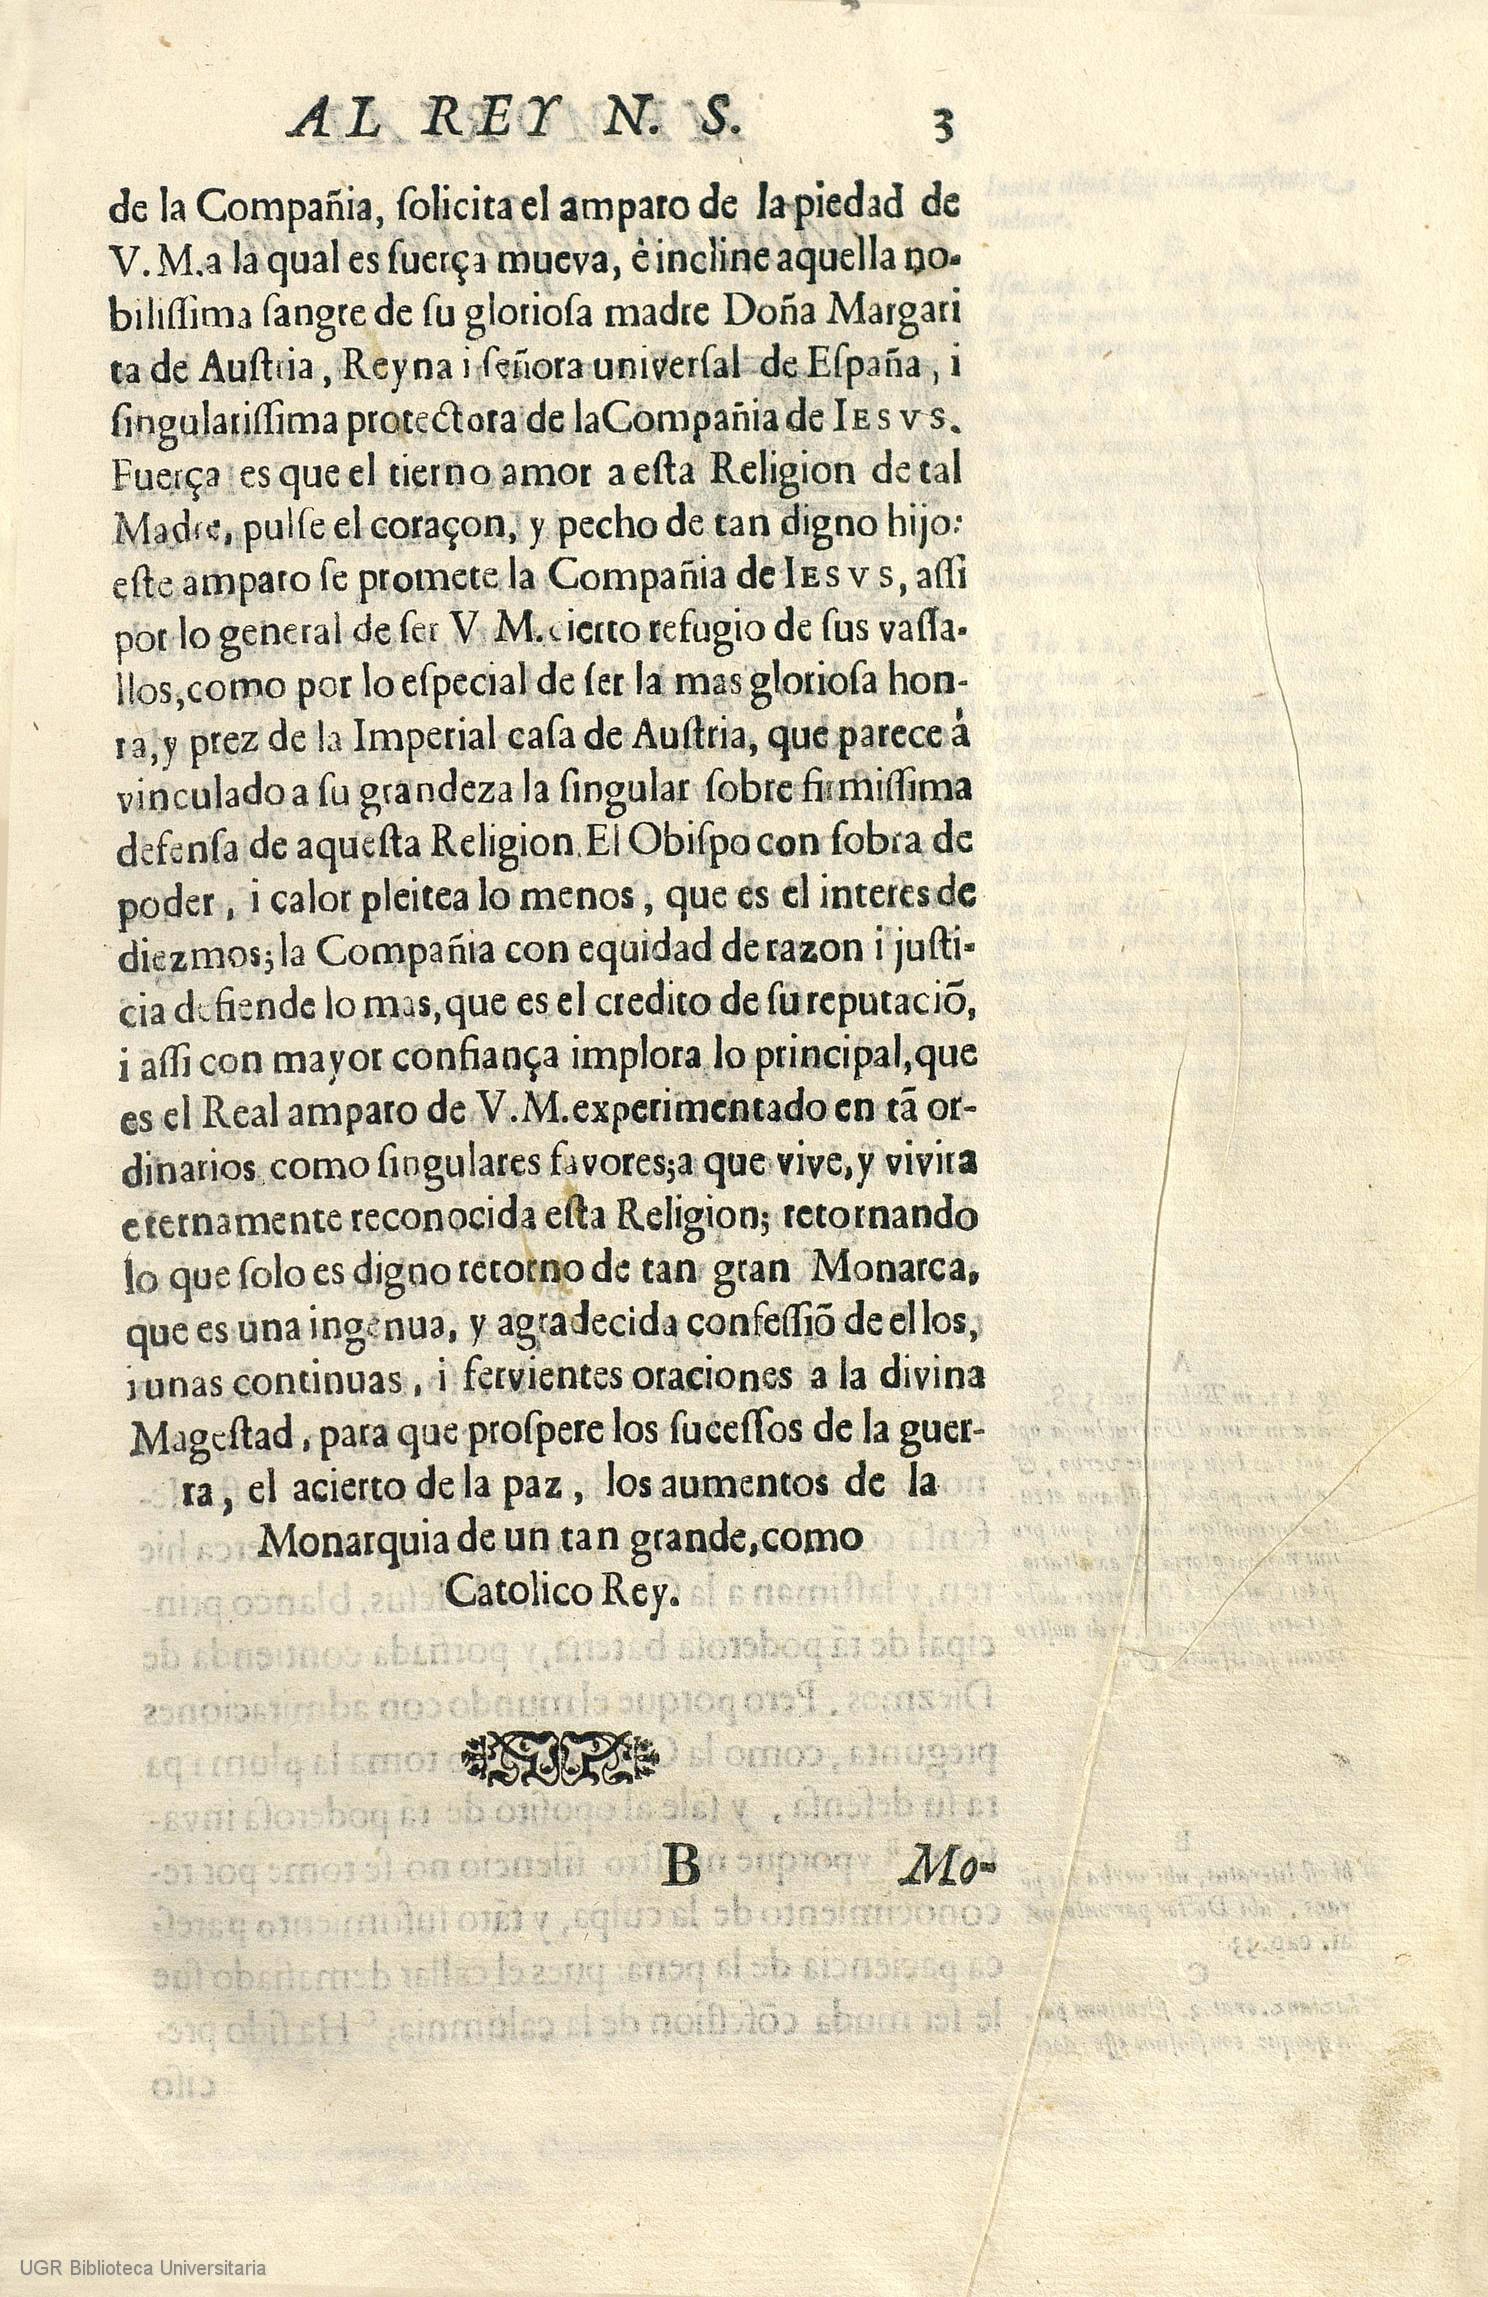 AL REY N. S. 3
de la Compañia, ſolicita el amparo de la piedad de
V. M. a la qual es fuerça mueva, è incline aquella no-
biliſſima ſangre de ſu glorioſa madre Doña Margari
ta de Auſtria, Reyna i ſeñora univerſal de Eſpaña, i
ſingulariſſima protectora de la Compañia de IESVS.
Fuerça es que el tierno amor a eſta Religion de tal
Madre, pulſe el coraçon, y pecho de tan digno hijo:
eſte amparo ſe promete la Compañia de IESVS, aſſi
por lo general de ſer V M. cierto refugio de ſus vaſſa-
llos, como por lo eſpecial de ſer la mas glorioſa hon-
ra, y prez de la Imperial caſa de Auſtria, que parece á
vinculado a ſu grandeza la ſingular ſobre firmiſſima
defenſa de aqueſta Religion. El Obiſpo con ſobra de
poder, i calor pleitea lo menos, que es el interes de
diezmos; la Compañia con equidad de razon i juſti-
cia defiende lo mas, que es el credito de ſu reputaciõ,
i aſſi con mayor confiança implora lo principal, que
es el Real amparo de V. M. experimentado en tã or-
dinarios como ſingulares favores; a que vive, y vivira
eternamente reconocida eſta Religion; retornando
lo que ſolo es digno retorno de tan gran Monarca,
que es una ingenua, y agradecida confeſſiõ de ellos,
i unas continuas, i fervientes oraciones a la divina
Mageſtad, para que proſpere los ſuceſſos de la guer-
ra, el acierto de la paz, los aumentos de la
Monarquia de un tan grande, como
Catolico Rey.
B Mo-
UGR Biblioteca Universitaria